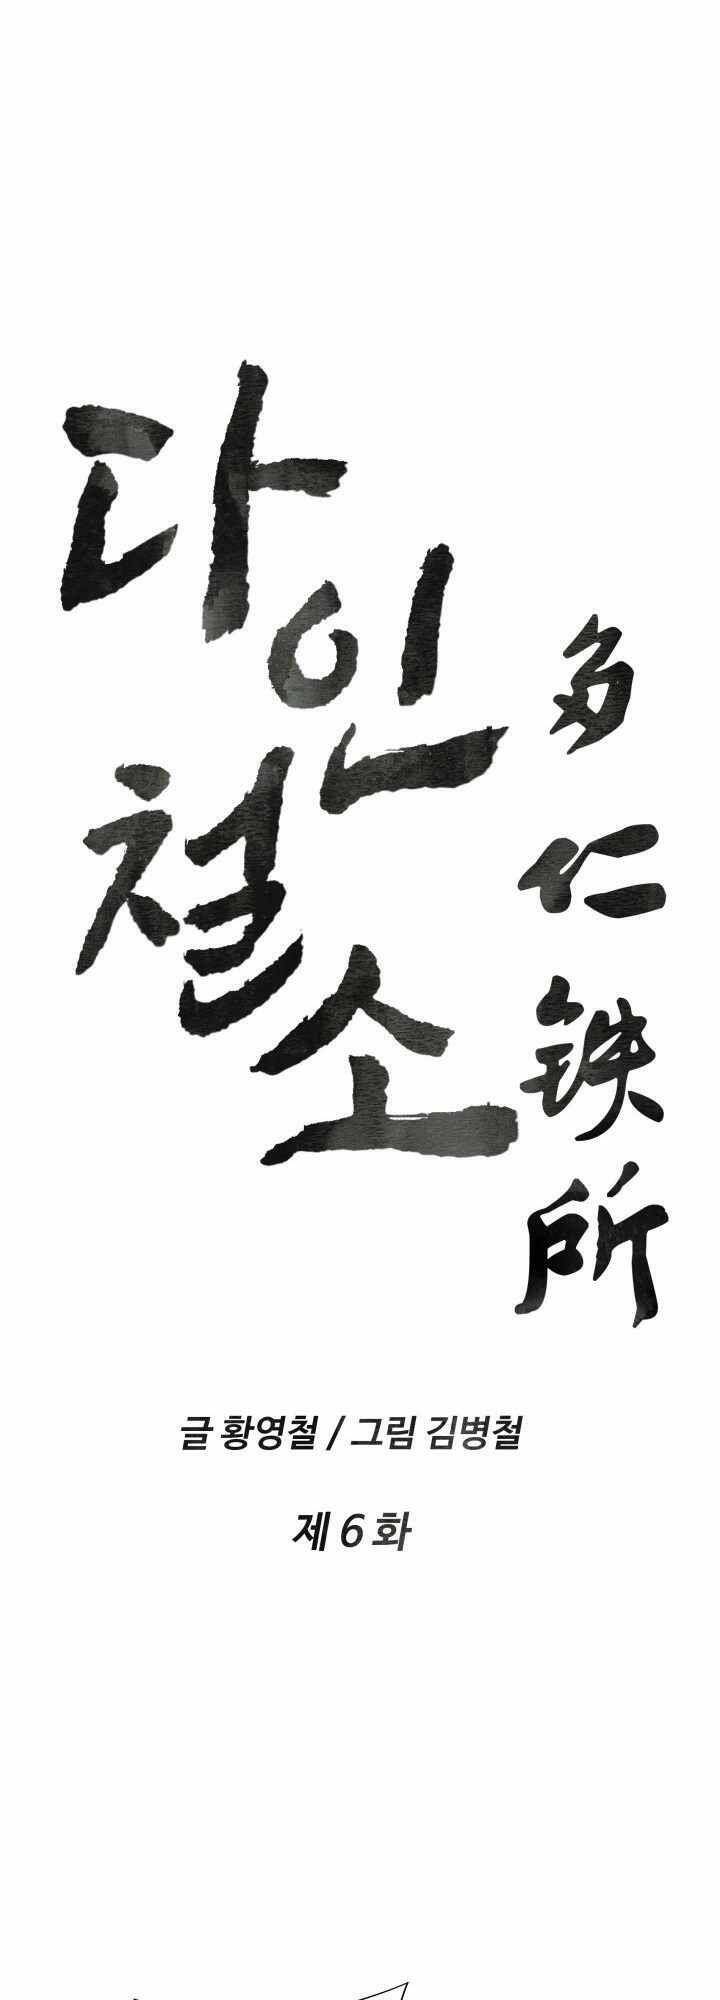 다인
철소
多仁鉄所
글 황영철 / 그림 김병철
제 6 화